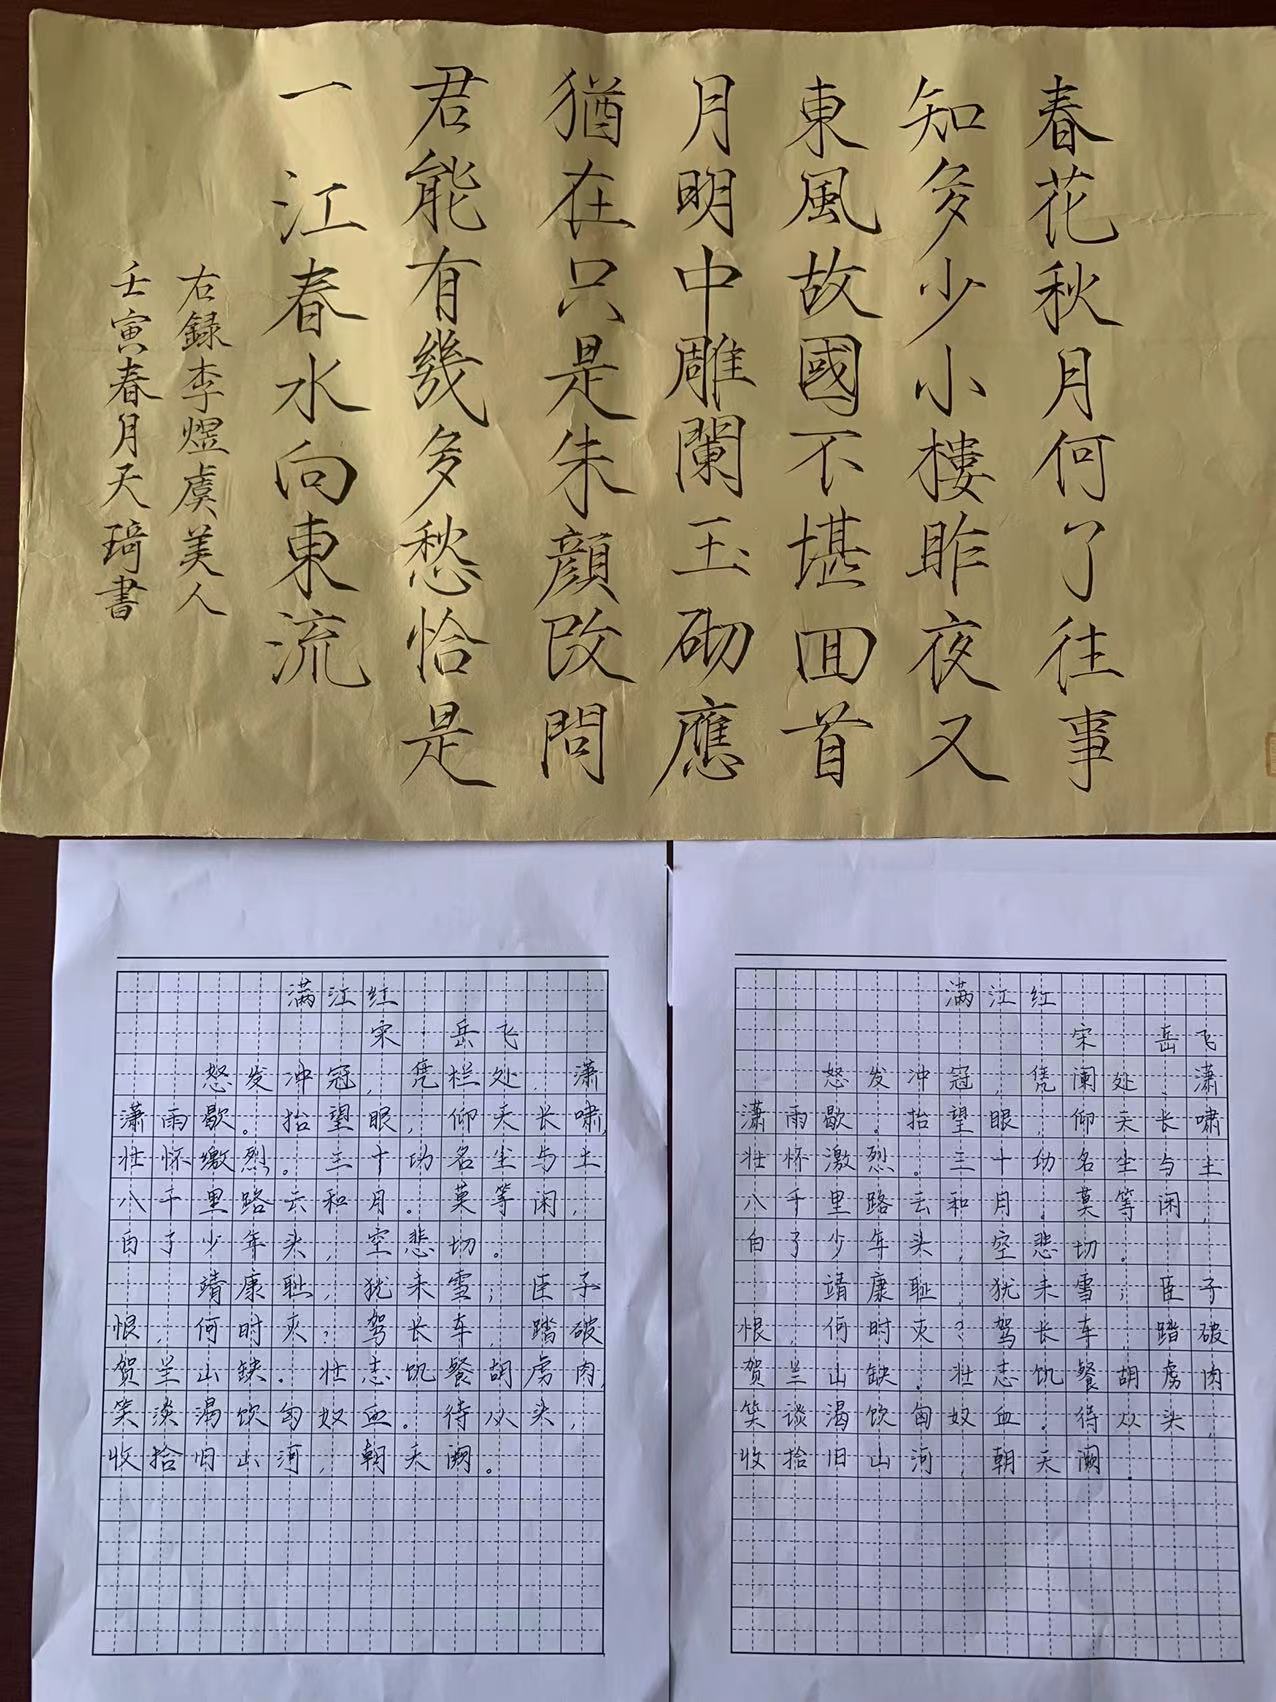 春花秋月何了往事
知多少小樓昨夜又
東風故國不堪回首
月明中雕闌玉砌應
猶在只是朱顔改問
君能有幾多愁恰是
一江春水向東流
右録李煜虞美人
壬寅春月天琦書
满江红
宋 岳飞
怒发冲冠，凭栏处，潇
潇雨歇。抬望眼，仰天长啸，
壮怀激烈。三十功名尘与土
八千里路云和月。莫等闲，
白了少年头，空悲切。
靖康耻，犹未雪；臣子
恨，何时灭，驾长车，踏破
贺兰山缺。壮志饥餐胡虏肉，
笑谈渴饮匈奴血。待从头，
收拾旧山河，朝天阙。
满江红
宋 岳飞
怒发冲冠，凭阑处、潇
潇雨歇。抬望眼，仰天长啸
壮怀激烈。三十功名尘与土
八千里路云和月。莫等闲，
白了少年头，空悲切。
靖康耻，犹未雪；臣子
恨，何时灭？驾长车 踏破
贺兰山缺。壮志饥餐胡虏肉
笑谈渴饮匈奴血。待从头，
收拾旧山河，朝天阙．